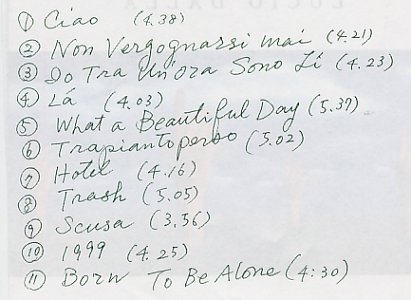 ① Ciao (4.38)
② Non Vergognarsi mai (4.21)
③ Io Tra Un'ora Sono Lí (4.23)
④ Lá (4.03)
⑤ What a Beautiful Day (5.37)
⑥ Trapiantoperso (5.02)
⑦ Hotel (4.16)
⑧ Trash (5.05)
⑨ Scusa (3.56)
⑩ 1999 (4.25)
⑪ Born To Be Alone (4:30)